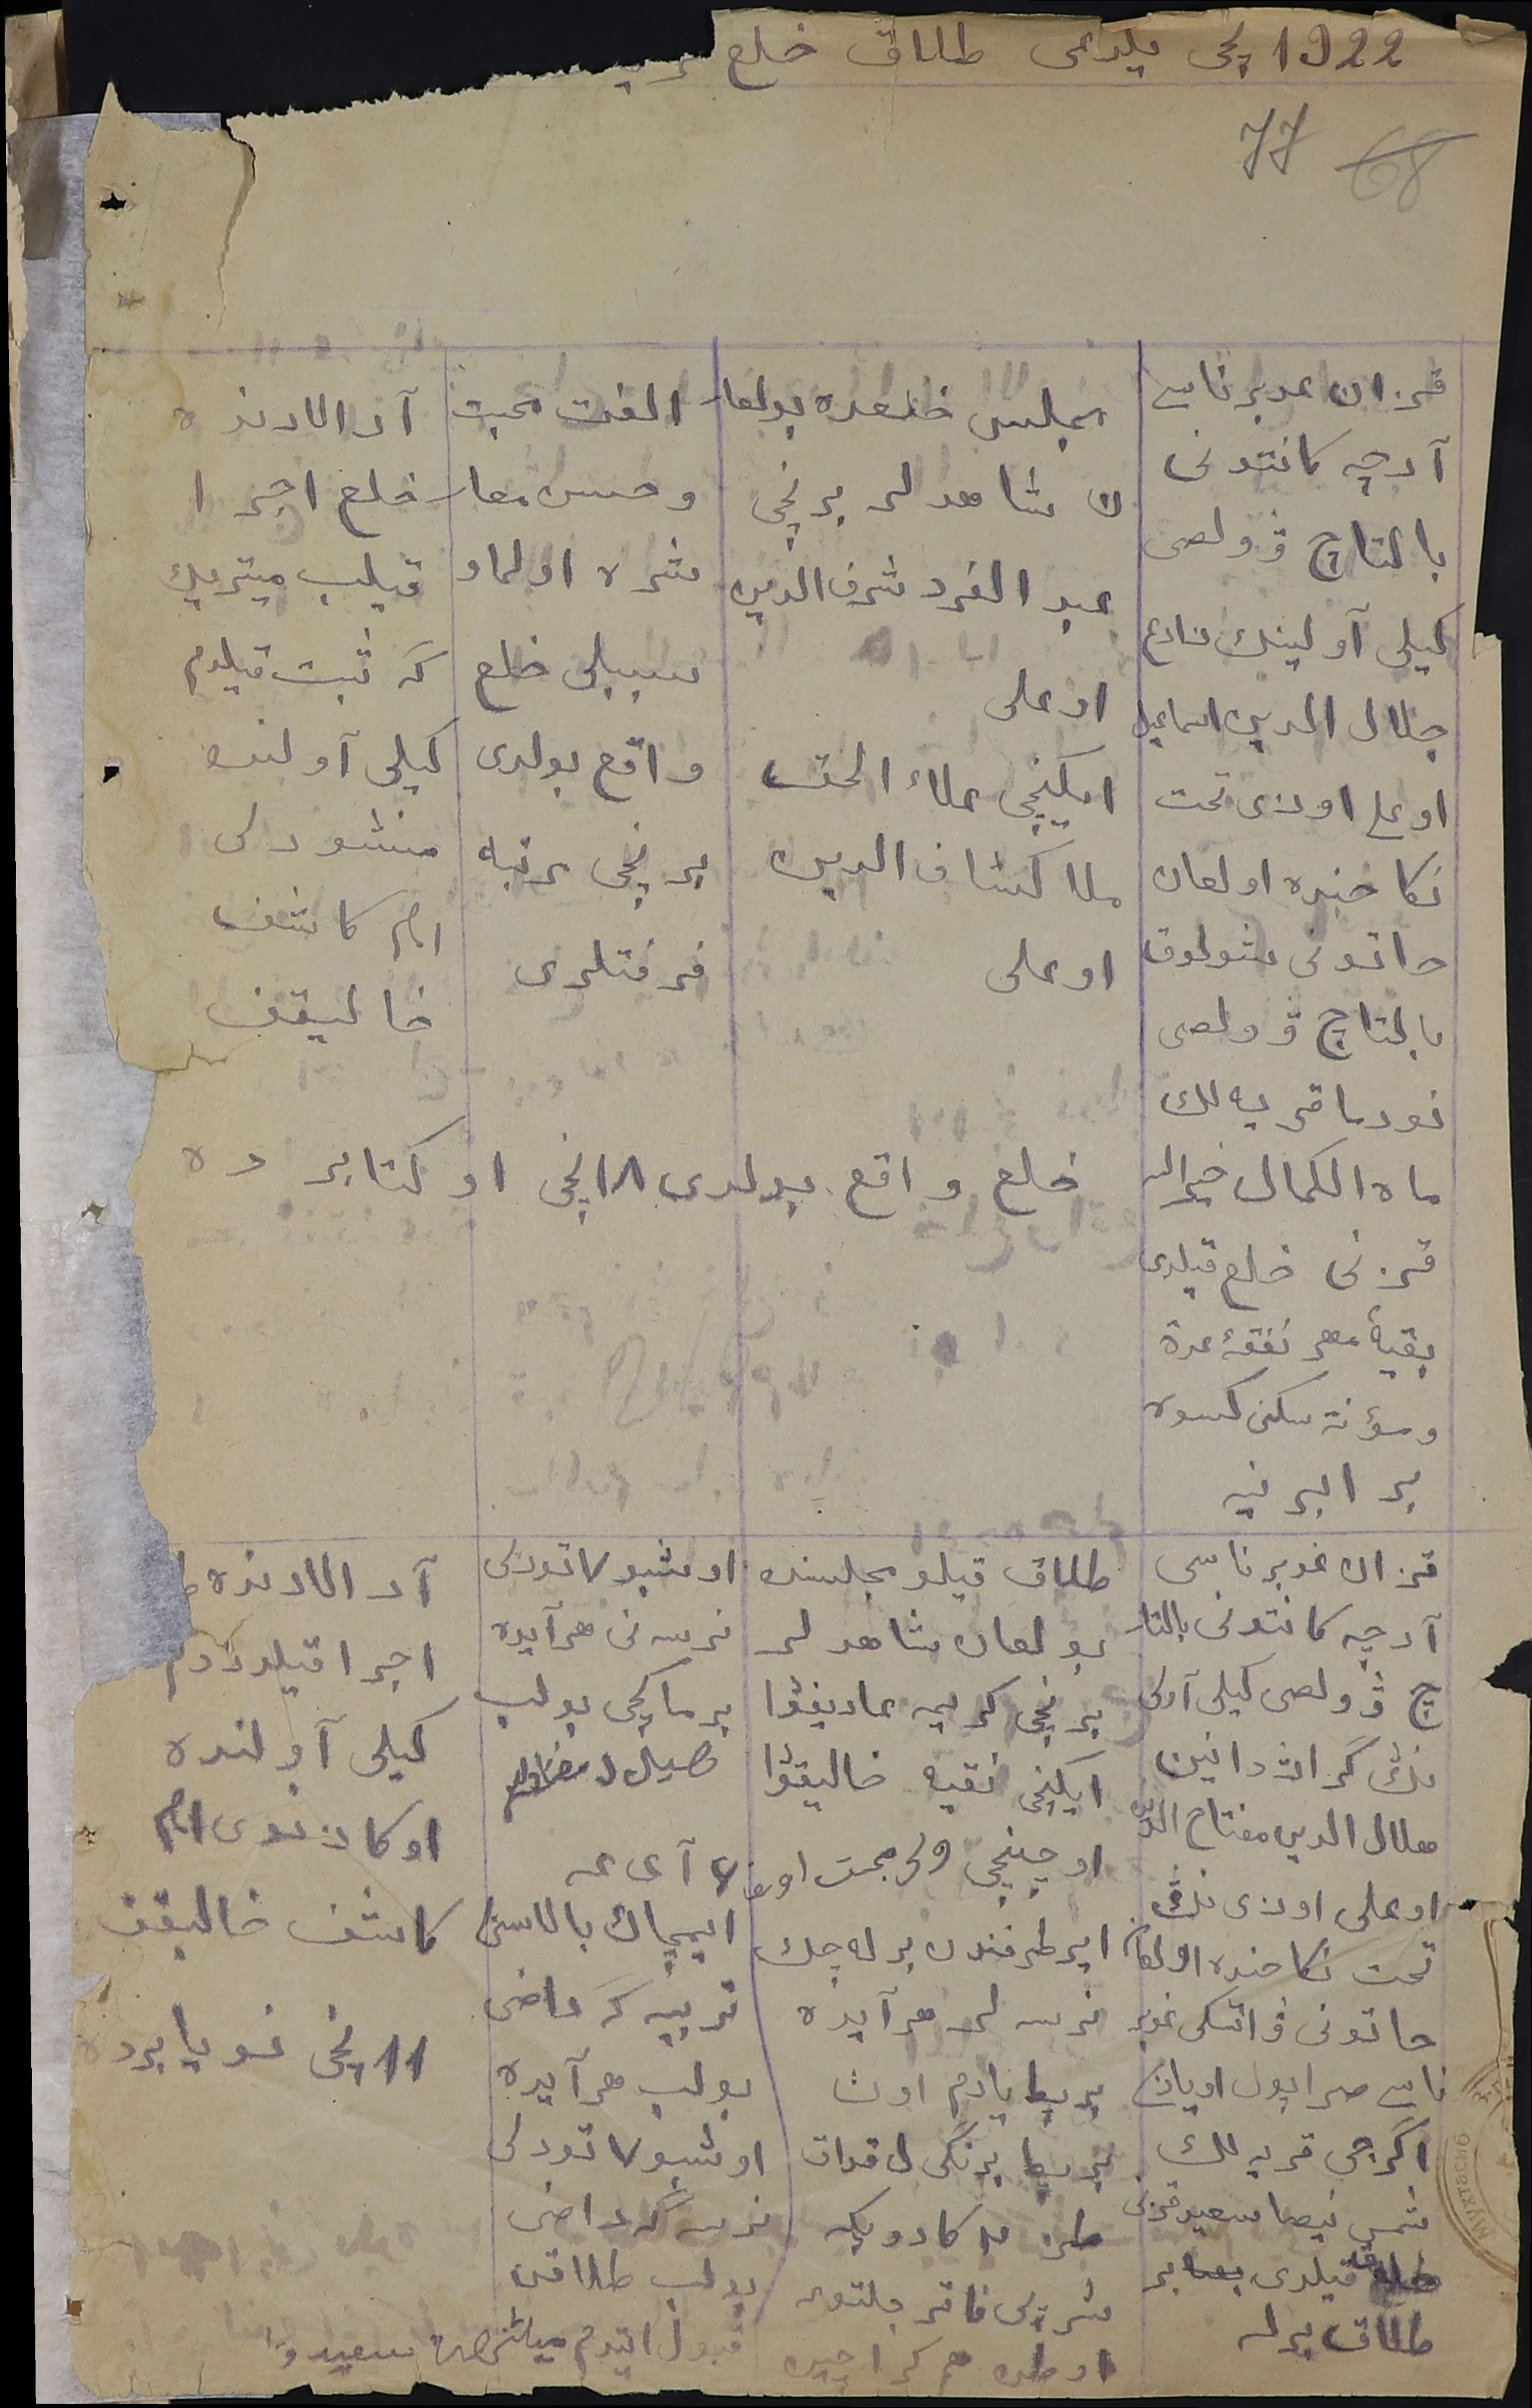 1922 نچی یلدغی طلاق خلع
77 68
قزان غوبرناسی
آرچه کانتونی
بالتاچ ڤولصی
کیلی آولینك
جلال الدین اسماعیل
اوغلی اوزی تحت
نکاحنده اولغان
خاتونی شولوق
بالتاچ ڤولصی
نورما قریه لك
ماه الکمال خیر الله
قزنی خلع قیلدی
بقیهٔ مهر نفقهٔ عدة
ومؤنة سکنی کسوه
برابرنیه
مجلس خلعده بولغا
ن شاهدلر برنچی
عبد الفرد شرف الدین
اوغلی
ایکنچی علاء الحق
ملا کشاف الدین
اوغلی
الفت محبت
وحسن معا
شره اولماو
سببلی خلع
واقع بولدی
برنچی مرتبه
فرقتلری
آرالارنده
خلع اجرا
قیلب میتریك
که ثبت قیلدم
کیلی آولنك
منشورلی
امام کاشف
خالیقف
خلع واقع بولدی ١٨نچی اوکتابرده
قزان غوبرناسی
آرچه کانتونی بالتا
چ ڤولصی کیلی آولی
نڭ گراژدانین
هلال الدین مفتاح الدین
اوغلی اوزی نڭ
تحت نکاحنده اولغان
خاتونی ڤاتسکی غوبر
ناسی صراپول اویازی
اگرجی قریه لك
شمس نیصا سعید قزی
طلاق قیلدی بر
طلاق برله
طلاق قیلو مجلسنده
بولغان شاهدلر
برنچی کریمه عماریفوا
ایکنچی نقیه خالیقوا
اوچنچی ولی محمت اوغلی
ایر طرفندن بیرله چك
نرسه لر هر آیده
بر پط یارم اون
بر پط برنگی
اوشبو ٧ تورلی
نرسه نی هر آیده
برماکچی بولب
٧ آی غه
ایمچاك بالاسن
تربیه گه راضی
بولب هر آیده
اوشبو ٧ تورلی
نرسه گه راضی
بولب طلاقن
قبول ایتدم سعیدوا
آرالارنده
اجرا قیلدردم
کیلی آولنده
اوکازنوی امام
کاشف خالیقف
11 نچی نویابرده
МУХТАСИБ